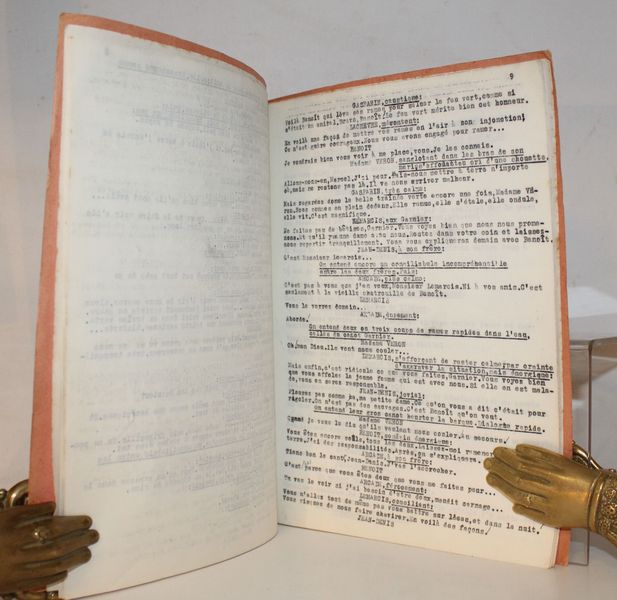 9
GASPARIN, caustique:
Voilà Benoît qui lève ses rames pour saluer le feu vert, comme si
c'était un amiral. Bravo, Benoît! Le feu vert mérite bien cet honneur.
LACHEVRE, mécontent:
En voilà une façon de mettre vos rames en l'air à son injonction!
Ce n'est guère courageux. Nous vous avons engagé pour ramer...
BENOIT
Je voudrais bien vous voir à ma place, vous. Je les connais.
Madame VERON, sanglotant dans les bras de son
Allons-nous-en, Marcel. J'ai peur. Fais-nous mettre à terre n'importe
où, mais ne restons pas là. Il va nous arriver malheur.
GASPARIN, très calme:
Mais regardez donc la belle traînée verte encore une fois, Madame VE-
RON. Nous sommes en plein dedans. Elle remue, elle s'étale, elle ondule,
elle vit. C'est magnifique.
LEMARCIS, aux Garnier:
Ne faites pas de bêtises, Garnier. Vous voyez bien que nous nous prome-
nons. Restez dans votre coin et laissez-
nous repartir tranquillement. Vous vous expliquerez demain avec Benoît.
JEAN-DENIS, à son frère:
C'est Monsieur Lemarcis...
On entend encore un conciliabule incompréhensible
entre les deux frères. Puis:
ARCAIN, plus calme:
C'est pas à vous que j'en veux, Monsieur Lemarcis. Ni à vos amis. C'est
seulement à la vieille chatrouille de Benoît.
LEMARCIS
Vous le verrez demain..
ARCAIN, durement:
Aborde!
On entend deux ou trois coups de rames rapides dans l'eau,
celles du canot Garnier.
Madame VERON
Oh, mon Dieu. Ils vont nous couler...
LEMARCIS, s'efforçant de rester calme par crainte
d'aggraver la situation, mais énergique:
Mais enfin, c'est ridicule ce que vous faites, Garnier. Vous voyez bien
que vous affolez la jeune femme qui est avec nous. Si elle en est mala-
de, vous en serez responsable.
JEAN-DENIS, jovial:
Pleurez pas comme ça, ma petite dame. Ce qu'on vous a dit c'était pour
rigoler. On n'est pas des sauvages. C'est Benoît qu'on veut.
on entend leur gros canot heurter la barque. Dialogue rapide.
Madame VERON
Quand je vous le dis qu'ils veulent nous couler. Au secours!
BENOIT, soudain énergique:
Vous êtes encore saouls, tous les deux. Laissez-moi ramener
terre. J'ai des responsabilités. Après, on s'expliquera.
ARCAIN, à son frère:
Tiens bon le canot, Jean-Denis. J'vas l'accrocher.
BENOIT
C'est parce que vous êtes deux que vous ne faites pour...
ARCAIN, férocement:
Tu vas le voir si j'ai besoin d'être deux, maudit carnage...
LEMARCIS, conciliant:
Vous n'allez tout de même pas vous battre sur l'eau, et dans la nuit.
Vous risquez de nous faire chavirer. En voilà des façons!
JEAN-DENIS